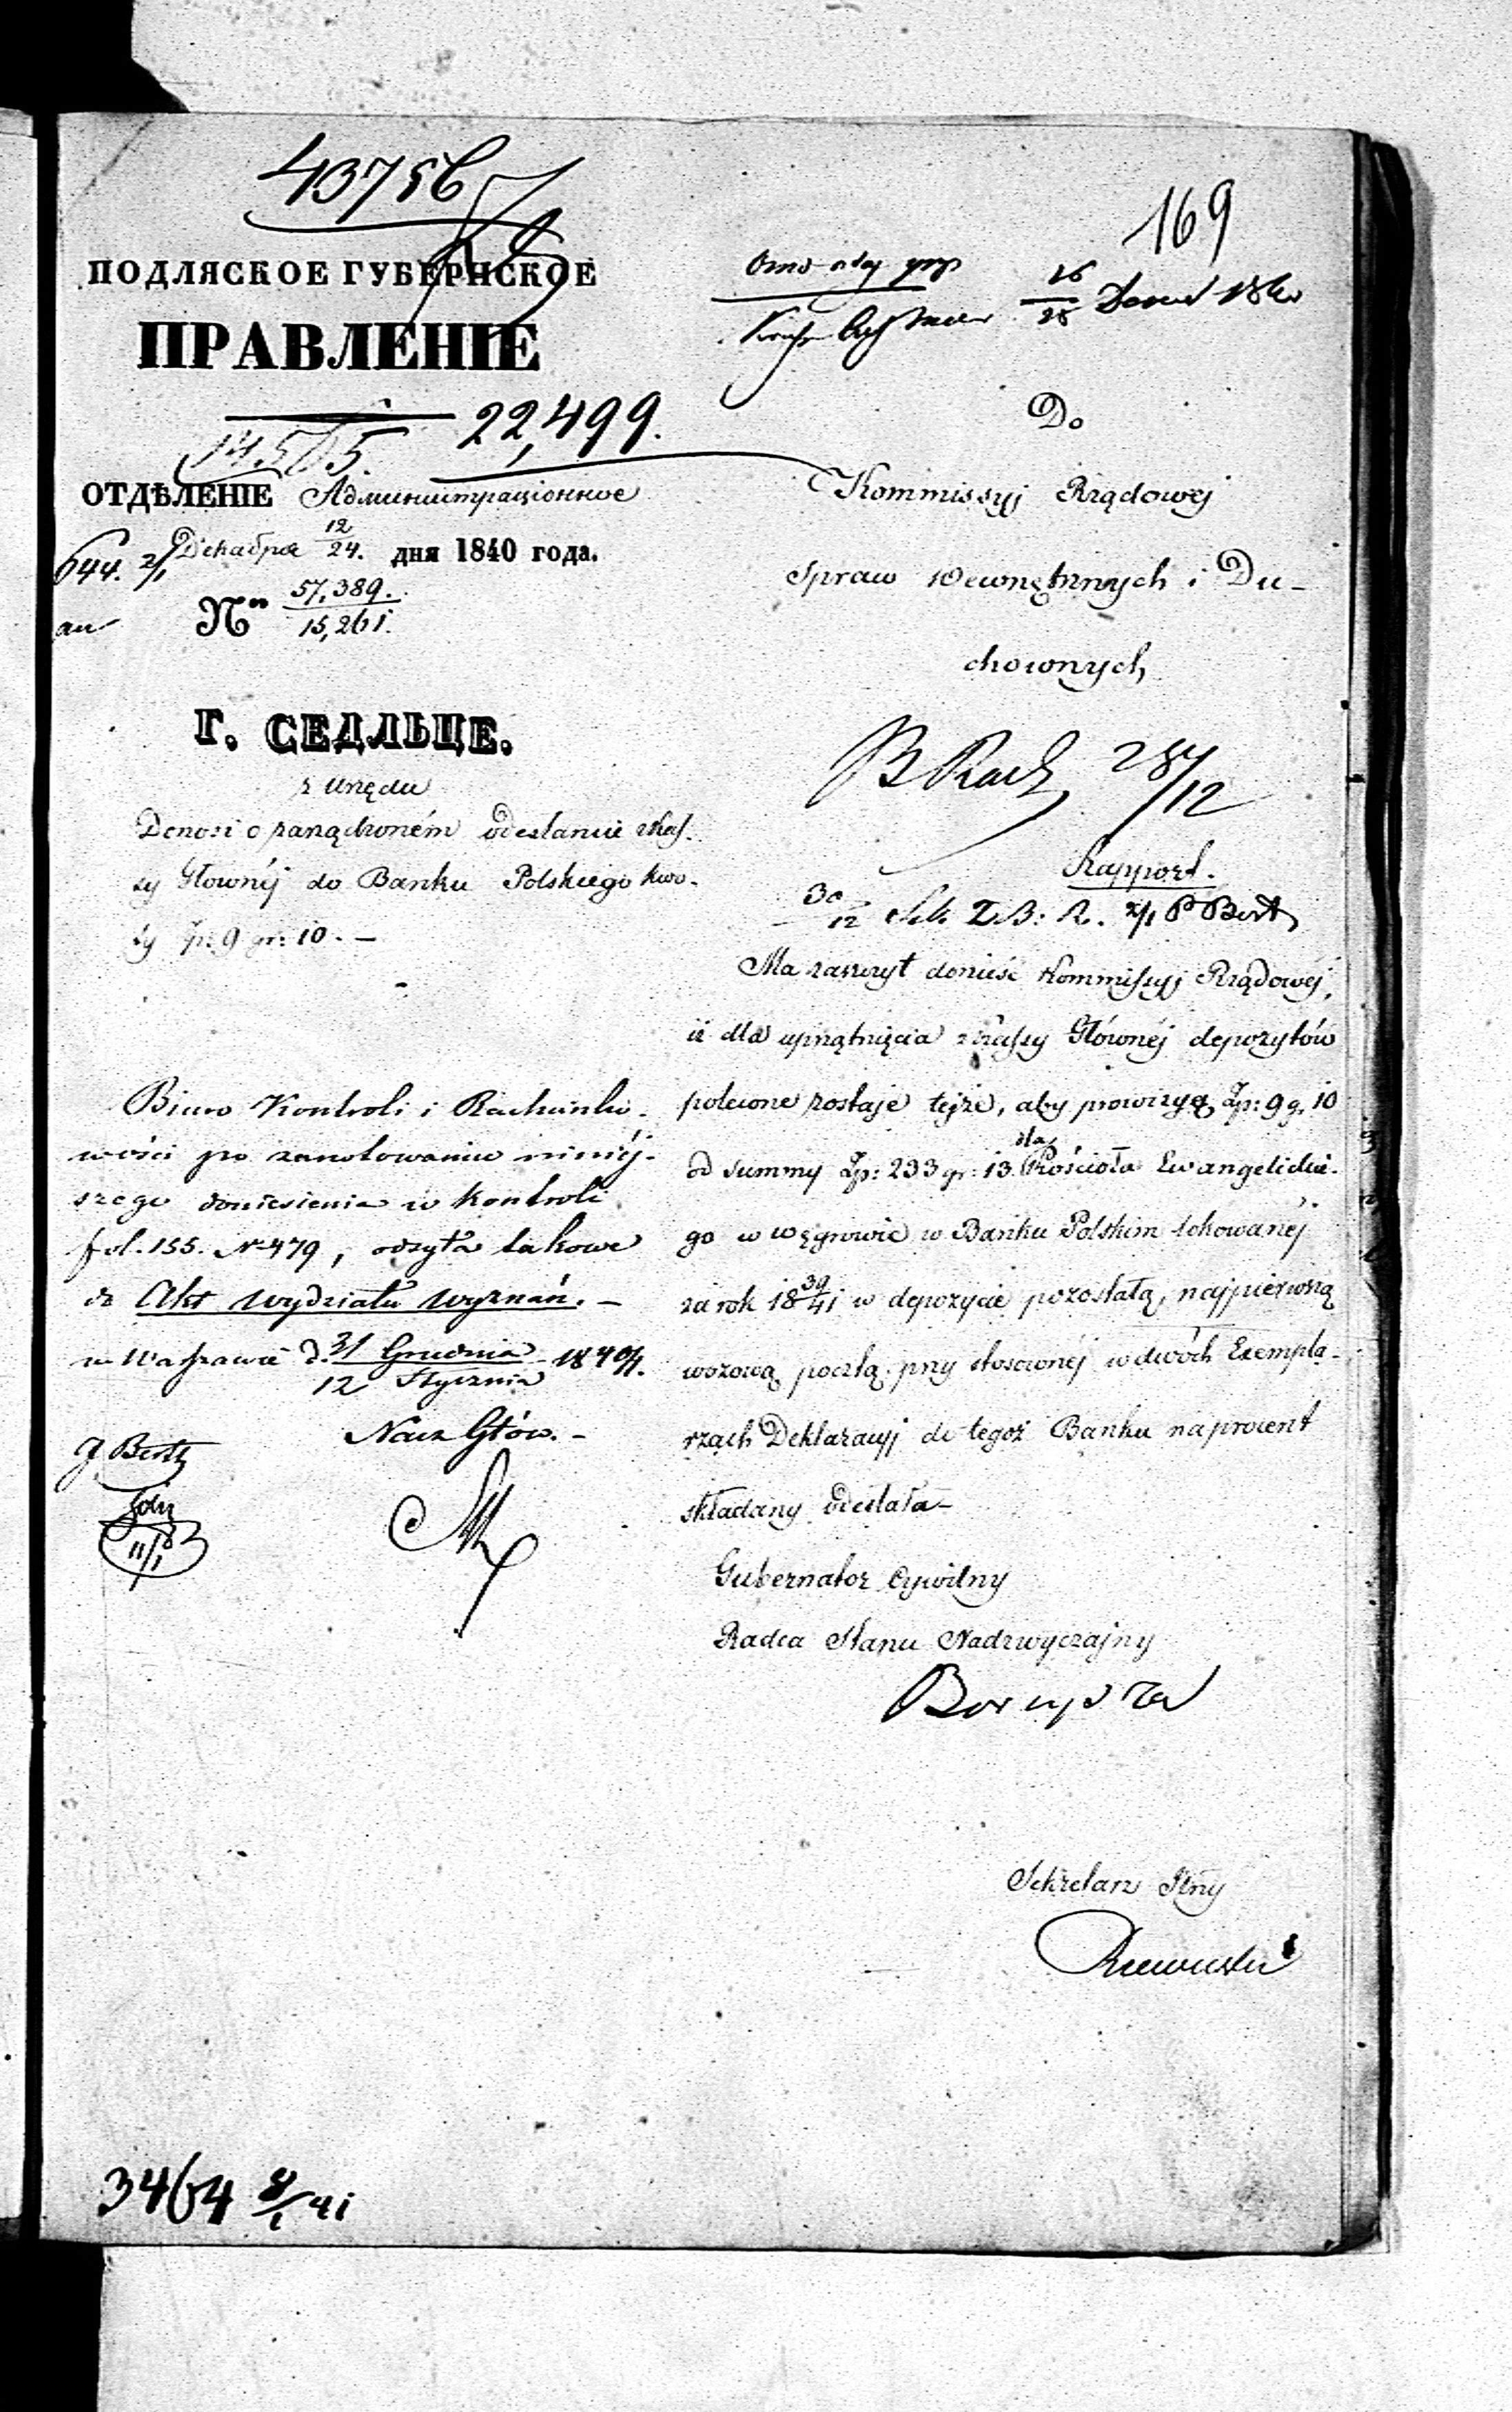 43756
169
ПОДЛЯСКОЕ ГУБЕРНСКОЕ
ПРАВЛЕНІЕ
22,499.
14,515.
ОТДѢЛЕНІЕ Администраціонное
Декабря 12/24. дня 1840 года.
644. 2/1
No 57,389. / 15,261.
Г. СЕДЛЬЦЕ.
z urzędu
Donosi o zarządzoném odesłaniu z Kas-
sy Głównéj do Banku Polskiego kwo-
ty Zp: 9 gr: 10. —
Biuro Kontroli i Rachunko-
wości po zanotowaniu niniéj-
szego doniesienia w Kontroli
fol. 155. N 479, odsyła takowe
do Akt Wydziału Wyznań. —
w Warszawie d. 31 Grudnia / 12 Stycznia 1840/1.
Nacz Głów. —
J Berth
11/1
16/28
Do
Kommissyj Rządowej
Spraw Wewnętrznych i Du-
chownych
28/12
Rapport.
30/12 2/1 P Berth
Ma zaszczyt donieść Kommissyj Rządowéj,
iż dla uprzątnięcia z Kassy Głównéj depozytów
polecone zostaje tejże, aby prowizyą Zp: 9 g. 10
od summy Zp: 233 gr: 13. dla Kościoła Ewangelickie-
go w Węgrowie w Banku Polskim lokowanéj
za rok 18 39/41 w depozycie pozostałą, najpierwszą
wozową pocztą przy stosownéj w dwóch Exempla-
rzach Deklaracyj do tegoż Banku na procent
składany odesłała —
Gubernator Cywilny
Radca Stanu Nadzwyczajny
Sekretarz Jlny
3464 9/1 41